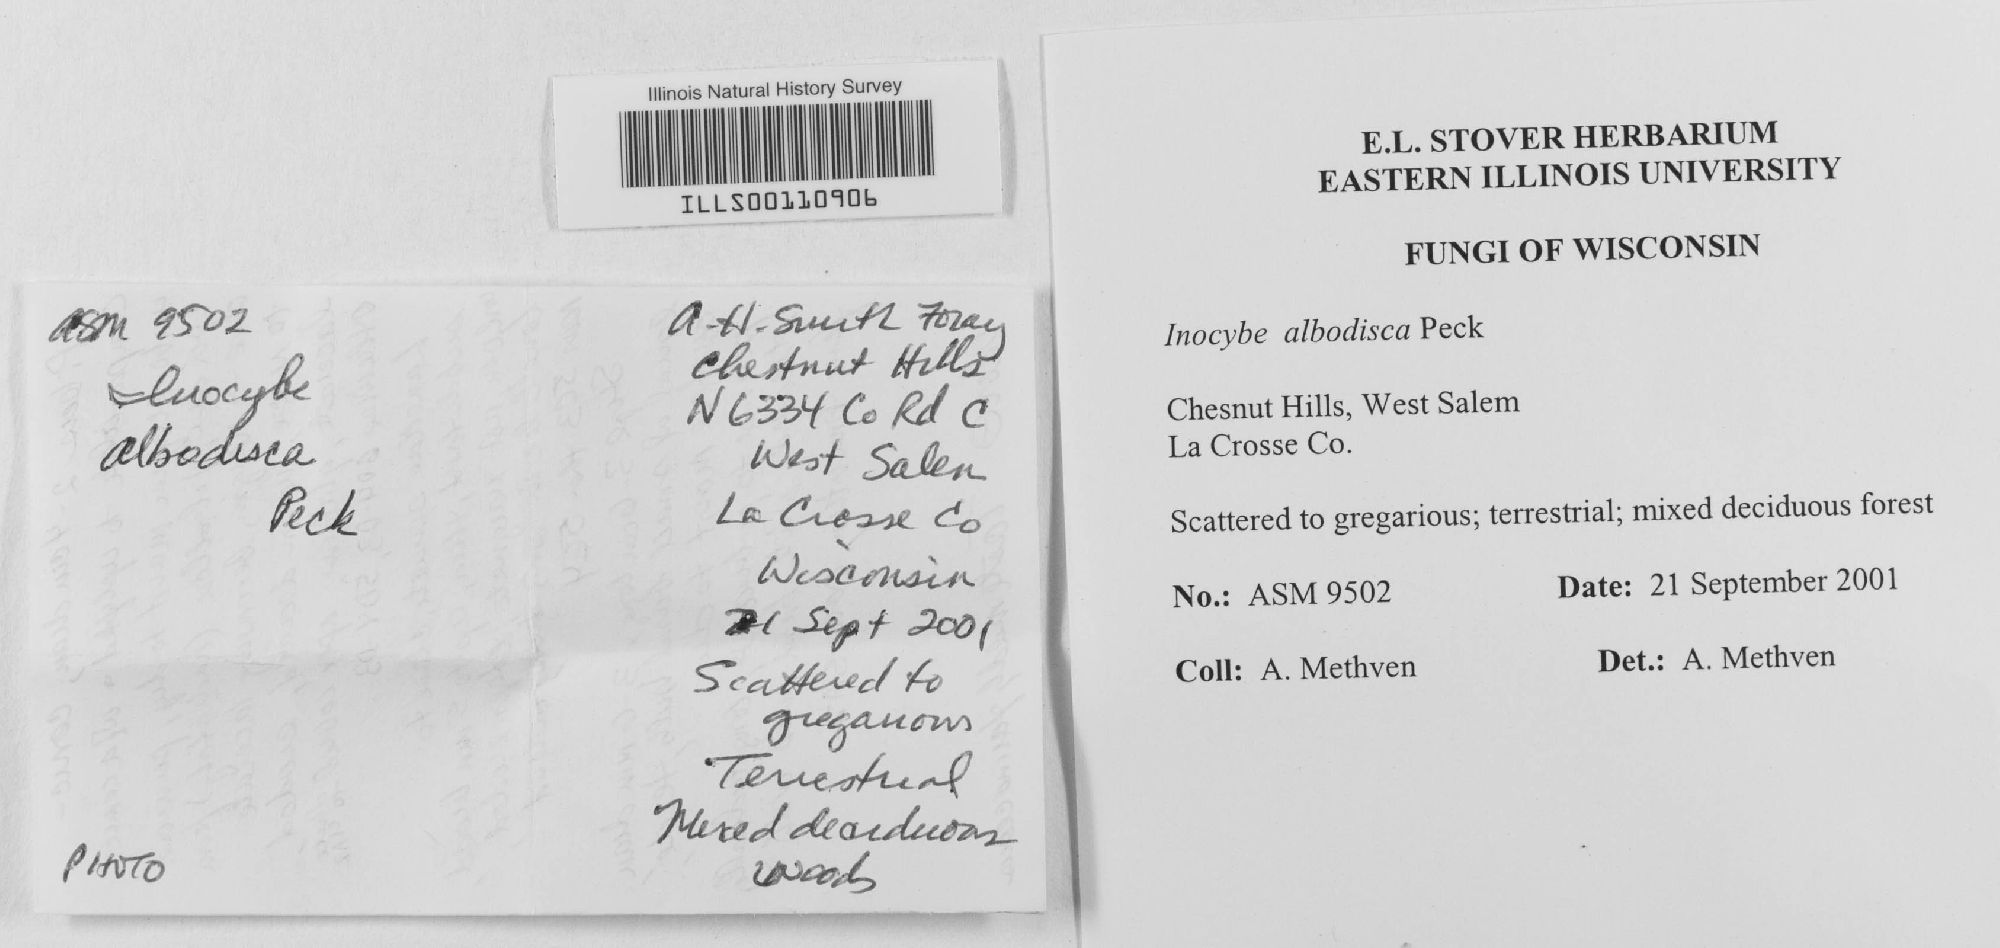 Illinois Natural History Survey
ILLS00110906
ASM 9502
Inocybe
albodisca
Peck
PHOTO
A.H. Smith Foray
Chestnut Hills
N6334 Co Rd C
West Salem
La Crosse Co
Wisconsin
21 Sept 2001
Scattered to
gregarious
Terrestrial
Mixed deciduous
woods
E.L. STOVER HERBARIUM
EASTERN ILLINOIS UNIVERSITY
FUNGI OF WISCONSIN
Inocybe albodisca Peck
Chesnut Hills, West Salem
La Crosse Co.
Scattered to gregarious; terrestrial; mixed deciduous forest
No.: ASM 9502 Date: 21 September 2001
Coll: A. Methven Det.: A. Methven